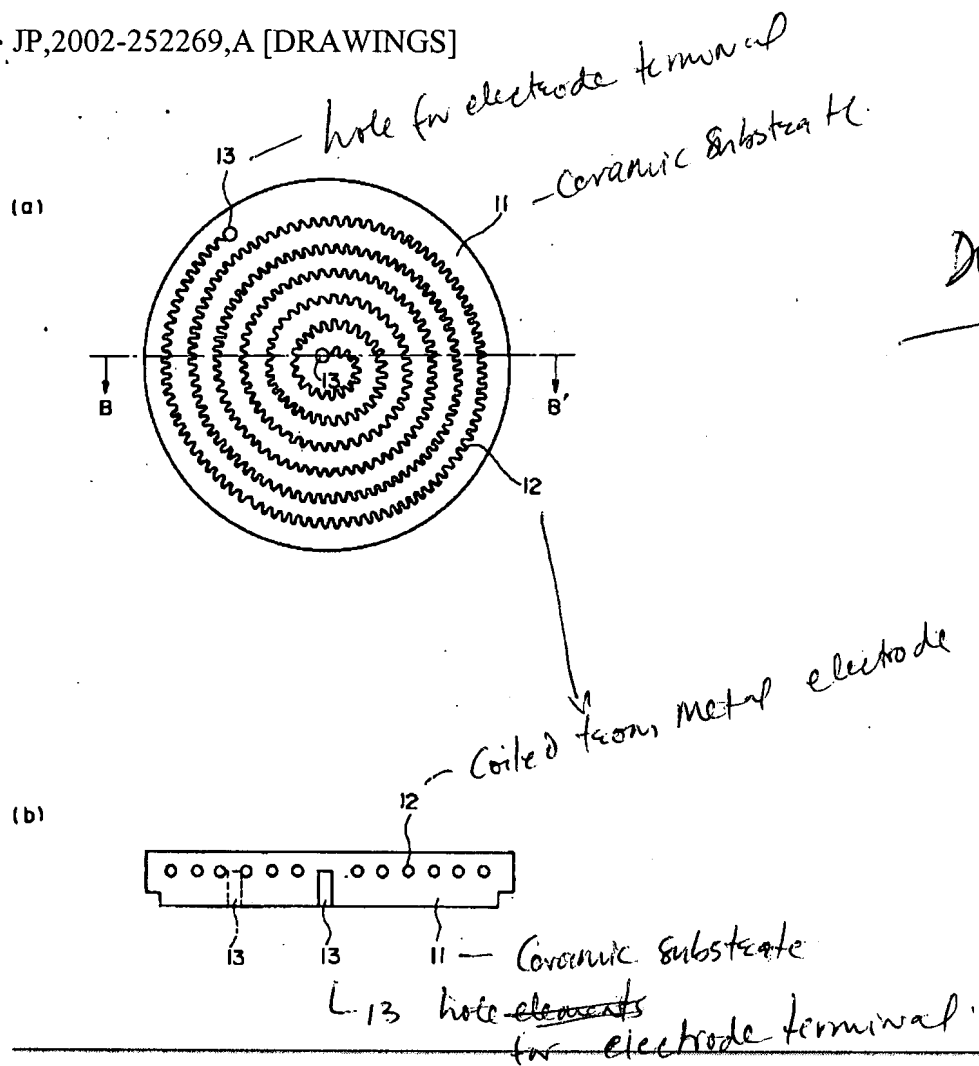 JP,2002-252269,A [DRAWINGS]
hole for electrode terminal
13
(a)
11 - Ceramic Substrate.
13
B B'
12
Coiled metal electrode
(b)
12
13 13 11 - Ceramic Substrate
13 hole elements
for electrode terminal.